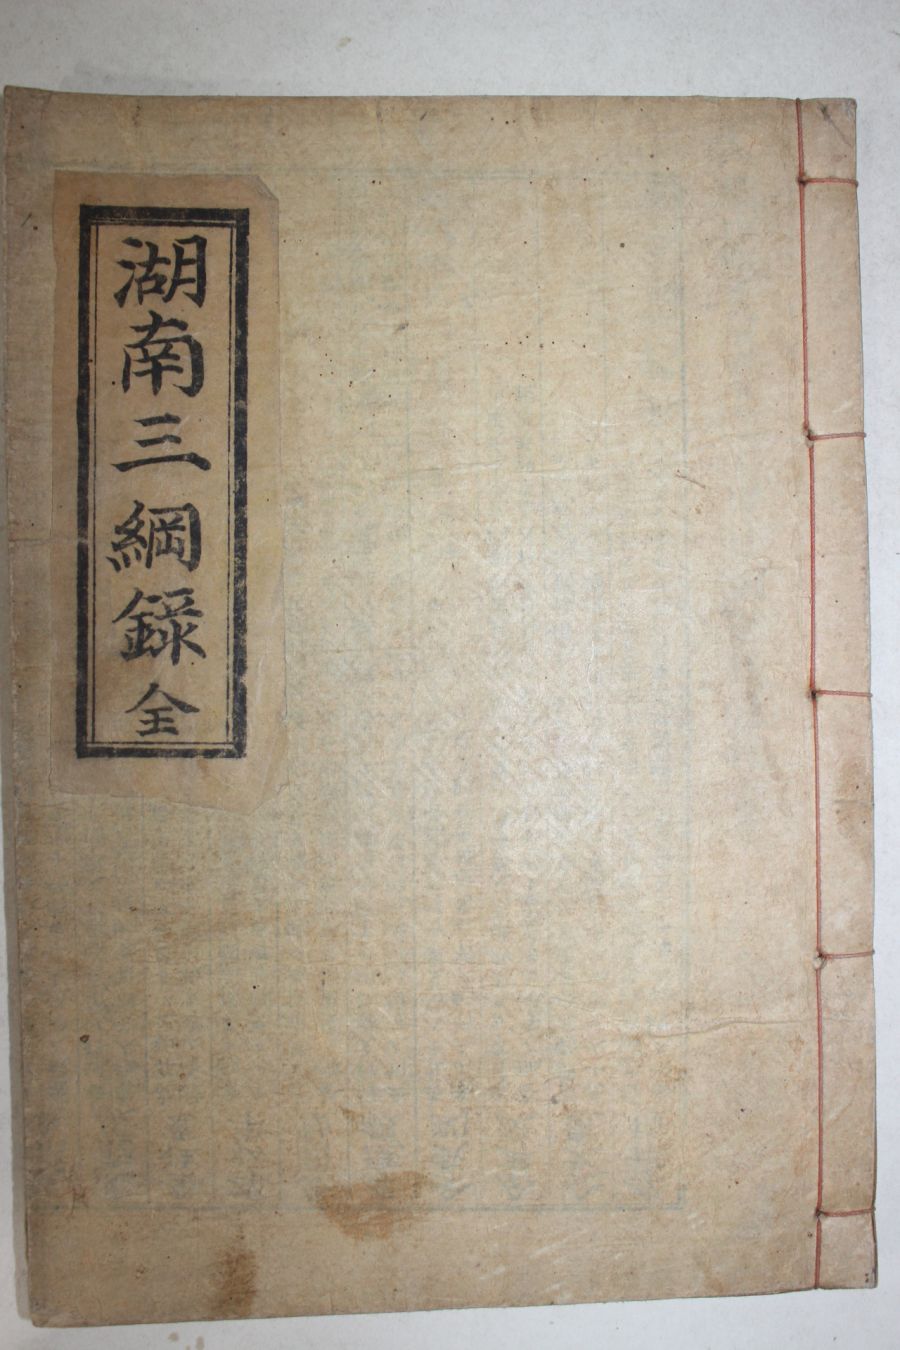 湖南三綱錄全